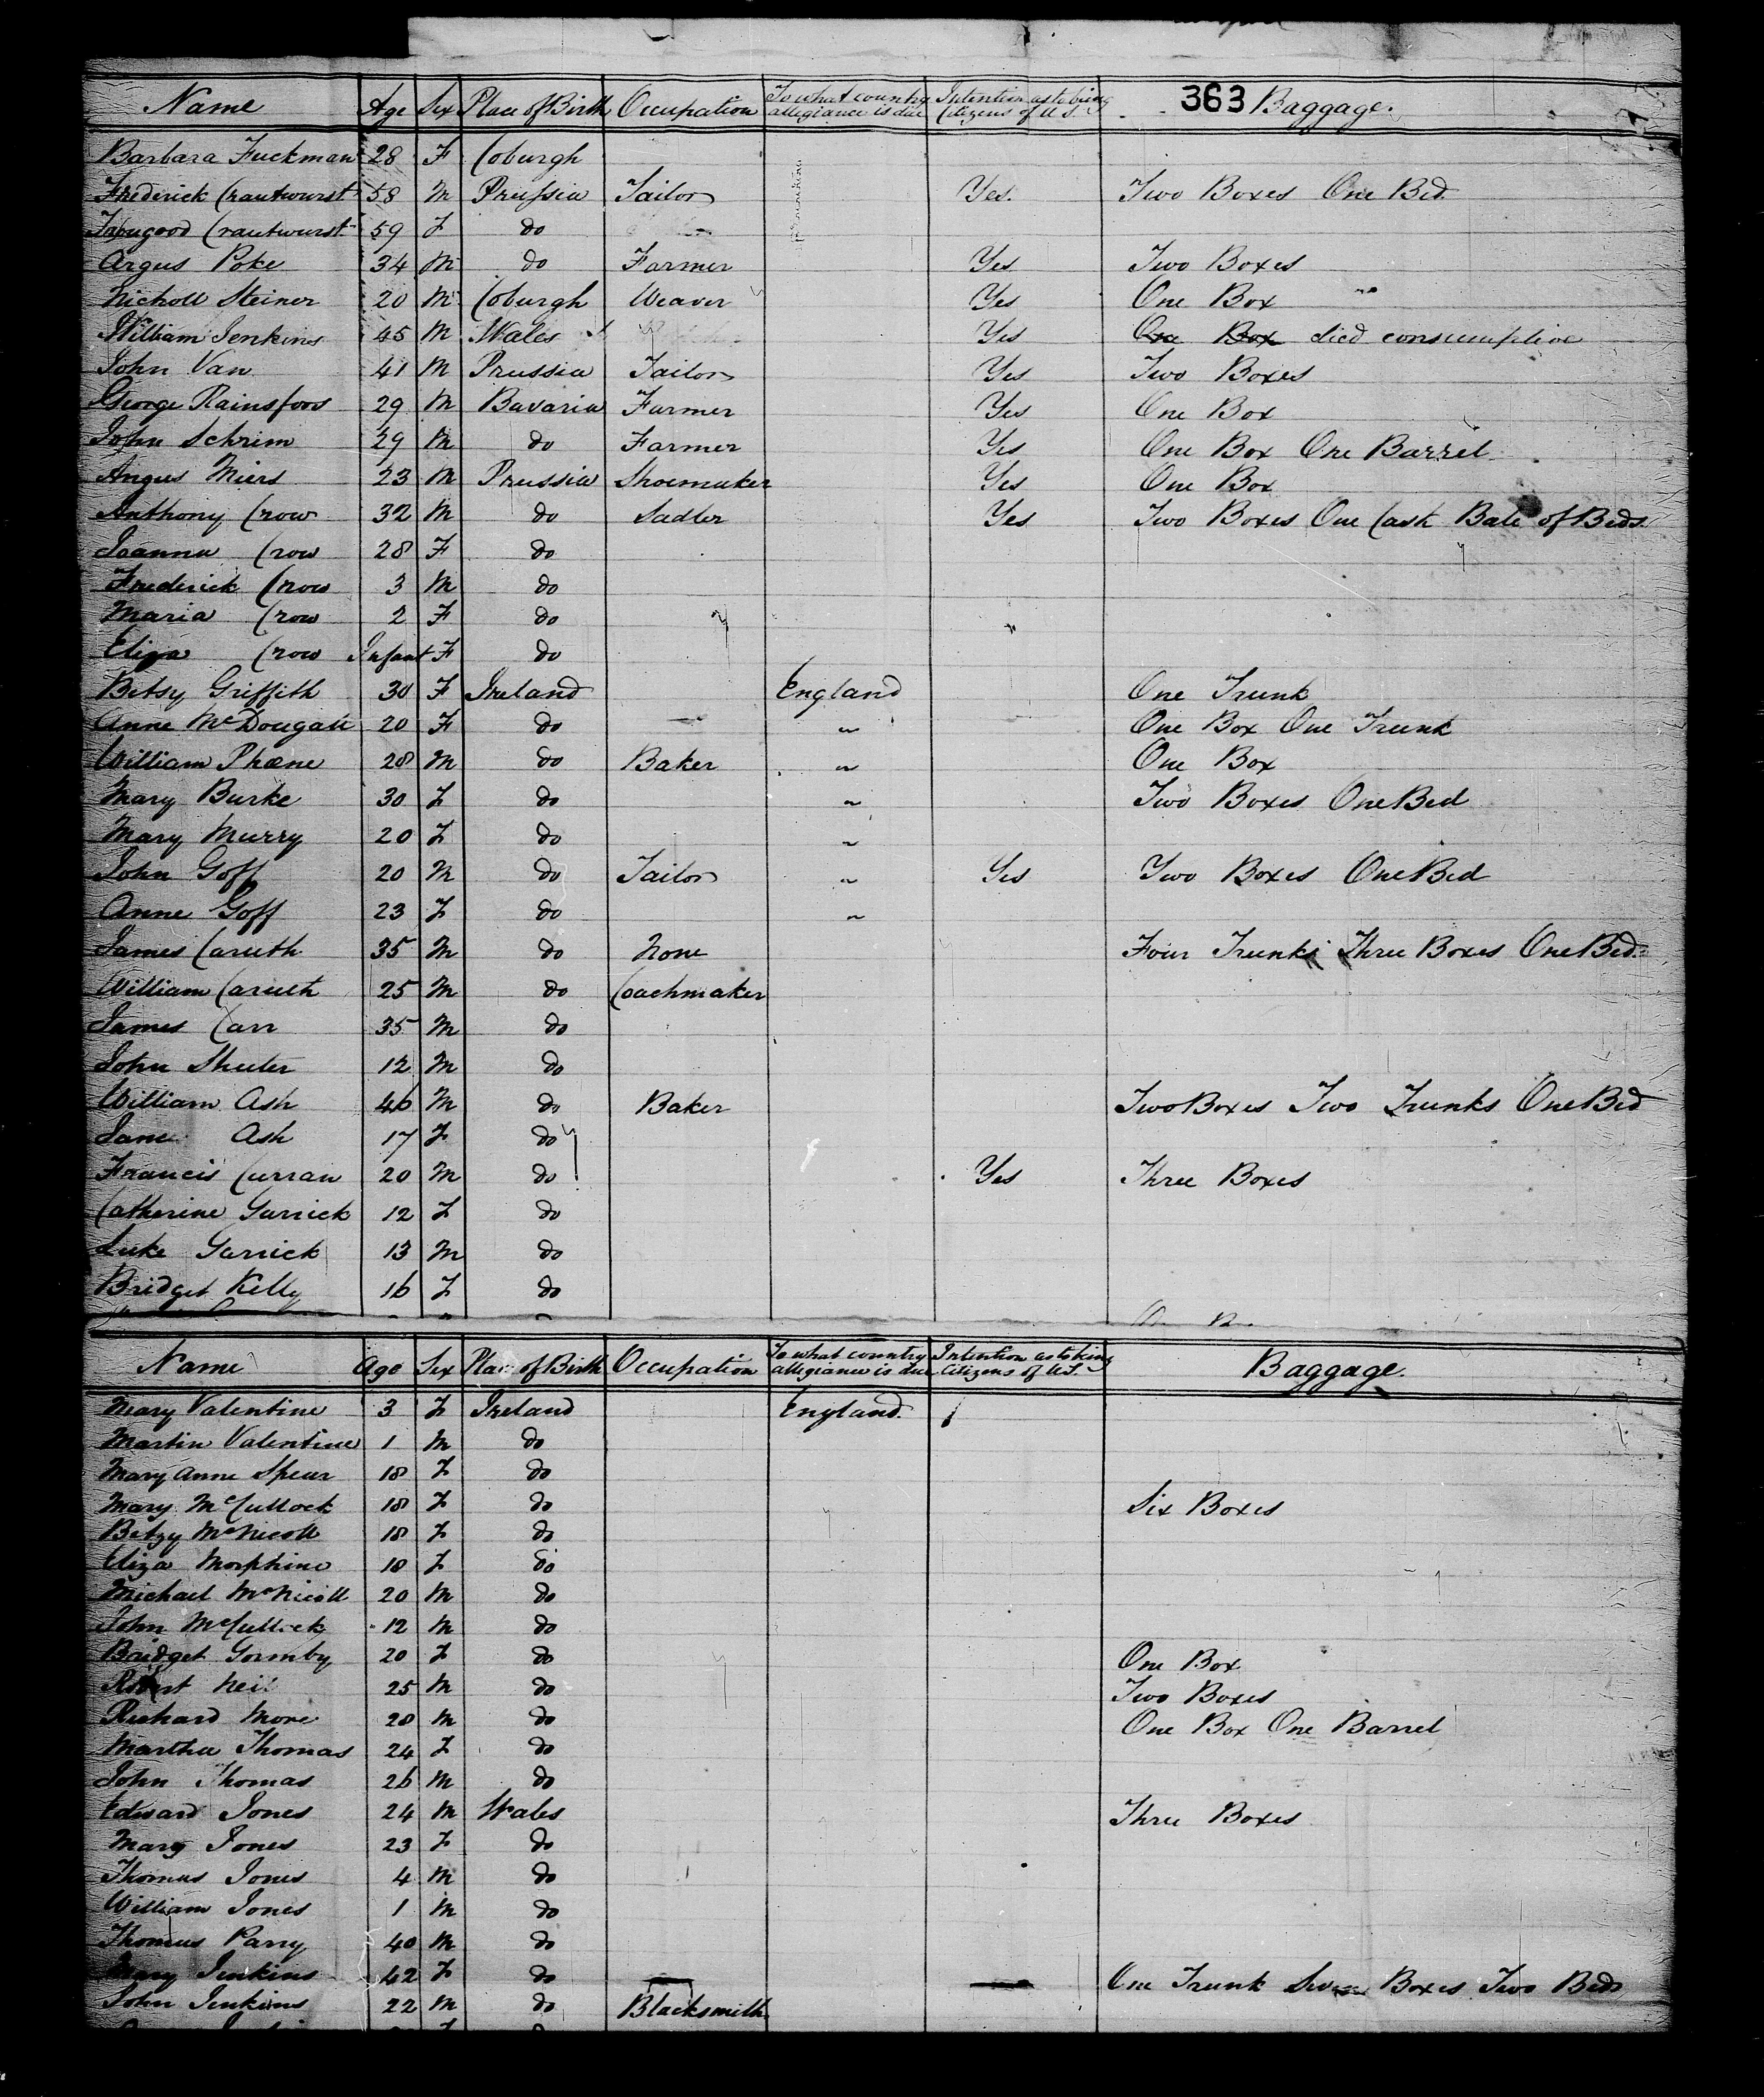 Name Age Sex Place of Birth Occupation To what country allegiance is due Intention as to being Citizens of U.S. 363 Baggage.
Barbara Fuckman 28 F Coburgh
Frederick Crautwurst 58 M Prussia Tailor Yes. Two Boxes One Bed
Crautwurst 59 F do
Argus Poke 34 M do Farmer Yes Two Boxes
Nicholl Steiner 20 M Coburgh Weaver Yes One Box "
William Jenkins 45 M Wales Yes One Box died consumptive
John Van 41 M Prussia Tailor Yes Two Boxes
George Rainsfoos 29 M Bavaria Farmer Yes One Box
John Schrim 29 M do Farmer Yes One Box One Barrel
Angus Miers 23 M Prussia Shoemaker Yes One Box
Anthony Crow 32 M do Sadler Yes Two Boxes One Cask Bale of Beds
Joanna Crow 28 F do
Frederick Crow 3 M do
Maria Crow 2 F do
Eliza Crow Infant F do
Betsy Griffith 30 F Ireland England One Trunk
Anne McDougall 20 F do " One Box One Trunk
William Phæne 28 M do Baker " One Box
Mary Burke 30 F do " Two Boxes One Bed
Mary Murry 20 F do "
John Goff 20 M do Tailor " Yes Two Boxes One Bed
Anne Goff 23 F do "
James Caruth 35 M do None Four Trunks Three Boxes One Bed
William Caruth 25 M do Coachmaker
James Carr 35 M do
John Sheeter 12 M do
William Ash 46 M do Baker Two Boxes Two Trunks One Bed
Jane Ash 17 F do
Francis Curran 20 M do Yes Three Boxes
Catherine Garrick 12 F do
Luke Garrick 13 M do
Bridget Kelly 16 F do
Name Age Sex Place of Birth Occupation To what country allegiance is due Intention as to being Citizens of U.S. Baggage.
Mary Valentine 3 F Ireland England.
Martin Valentine 1 M do
Mary Anne Spear 18 F do
Mary McCullock 18 F do Six Boxes
Betzy McNicoll 18 F do
Eliza Morphine 18 F do
Michael McNicoll 20 M do
John McCullock 12 M do
Bridget Gormby 20 F do One Box
Robert Neil 25 M do Two Boxes
Richard More 28 M do One Box One Barrel
Martha Thomas 24 F do
John Thomas 26 M do
Edward Jones 24 M Wales Three Boxes
Mary Jones 23 F do
Thomas Jones 4 M do
William Jones 1 M do
Thomas Parry 40 M do
Mary Jenkins 42 F do One Trunk Seven Boxes Two Beds
John Jenkins 22 M do Blacksmith